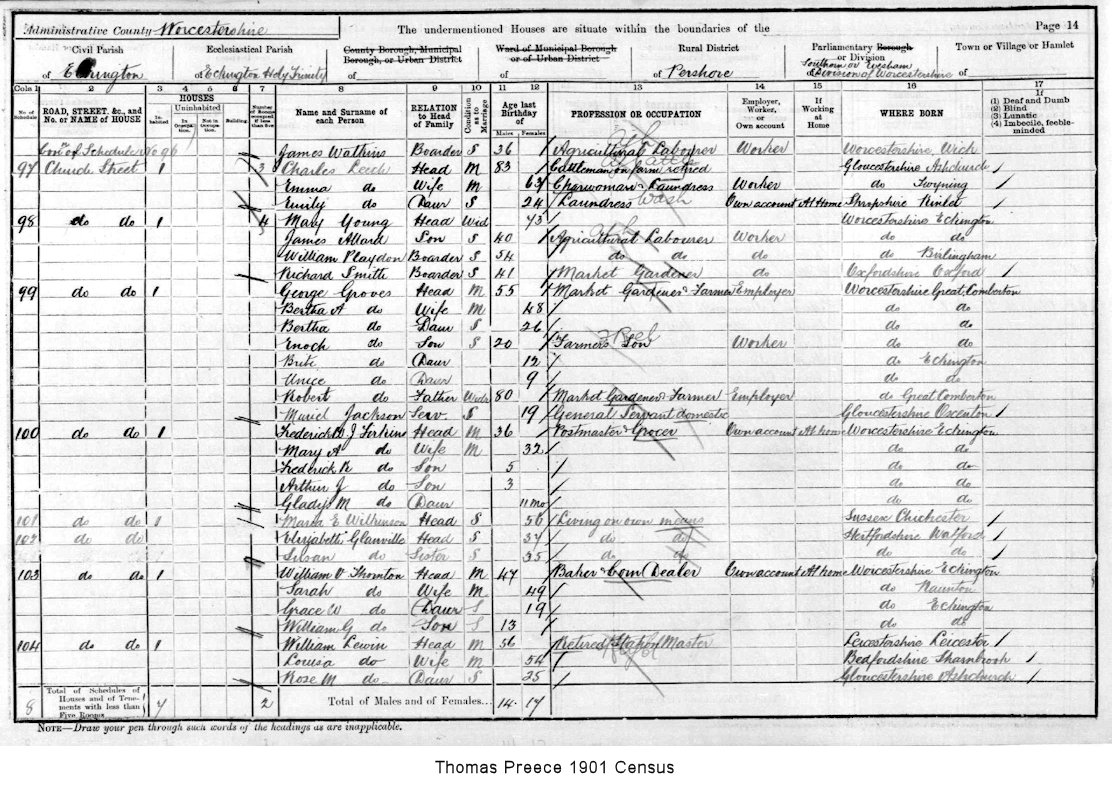 Administrative County Worcestershire The undermentioned Houses are situate within the boundaries of the Page 14
Civil Parish Ecclesiastical Parish County Borough, Municipal Borough, or Urban District Ward of Municipal Borough or of Urban District Rural District Parliamentary Borough or Division Town or Village or Hamlet
of Eckington of Eckington Holy Trinity of of of Pershore Southern or Evesham Division of Worcestershire of
Cols 1 2 3 4 5 6 7 8 9 10 11 12 13 14 15 16 17
No. of Schedule ROAD, STREET, &c., and No. or NAME of HOUSE HOUSES Inhabited Uninhabited In Occupation Not in Occupation Building Number of Rooms occupied if less than five Name and Surname of each Person RELATION to Head of Family Condition as to Marriage Age last Birthday of Males Females PROFESSION OR OCCUPATION Employer, Worker, or Own account If Working at Home WHERE BORN If (1) Deaf and Dumb (2) Blind (3) Lunatic (4) Imbecile, feeble-minded
of Schedule No 96 James Watkins Boarder S 36 Agricultural Labourer Worker Worcestershire Wick
97 Church Street 1 3 Charles Leech Head M 83 Cattleman on farm retired Gloucestershire Ashchurch
Emma do Wife M 63 Charwoman & Laundress Worker do Twyning
Emily do Daur S 24 Laundress Wash Own account At Home Shropshire Kinlet
98 do do 1 4 Mary Young Head Wid 73 Worcestershire Eckington
James Allard Son S 40 Agricultural Labourer Worker do do
William Playdon Boarder S 54 do do do do Birlingham
Richard Smith Boarder S 41 Market Gardener do Oxfordshire Oxford
99 do do 1 George Groves Head M 55 Market Gardener & Farmer Employer Worcestershire Great Comberton
Bertha A do Wife M 48 do do
Bertha do Daur S 26 do do
Enoch do Son S 20 Farmers Son Worker do do
do Daur 12 do Eckington
Unice do Daur 9 do do
Robert do Father Widr 80 Market Gardener & Farmer Employer do Great Comberton
Muriel Jackson Serv S 19 General Servant domestic Gloucestershire
100 do do 1 Frederick J Firkins Head M 36 Postmaster & Grocer Own account At home Worcestershire Eckington
Mary A do Wife M 32 do do
Frederick R do Son 5 do do
Arthur J do Son 3 do do
Gladys M do Daur 11 mo do do
101 do do 1 Maria E Wilkinson Head S 56 Living on own means Sussex Chichester
102 do do 1 Elizabeth Glanville Head S 37 do do Hertfordshire Watford
Susan do Sister S 35 do do do do
103 do do 1 William V Thornton Head M 47 Baker & Corn Dealer Own account At home Worcestershire Eckington
Sarah do Wife M 49 do Naunton
Grace W do Daur S 19 do Eckington
William G do Son S 13 do do
104 do do 1 William Lewin Head M 56 Retired Station Master Leicestershire Leicester
Louisa do Wife M 54 Bedfordshire Sharnbrook
Rose M do Daur S 25 Gloucestershire Ashchurch
8 Total of Schedules of Houses and of Tenements with less than Five Rooms 7 2 Total of Males and of Females... 14 17
NOTE—Draw your pen through such words of the headings as are inapplicable.
Thomas Preece 1901 Census